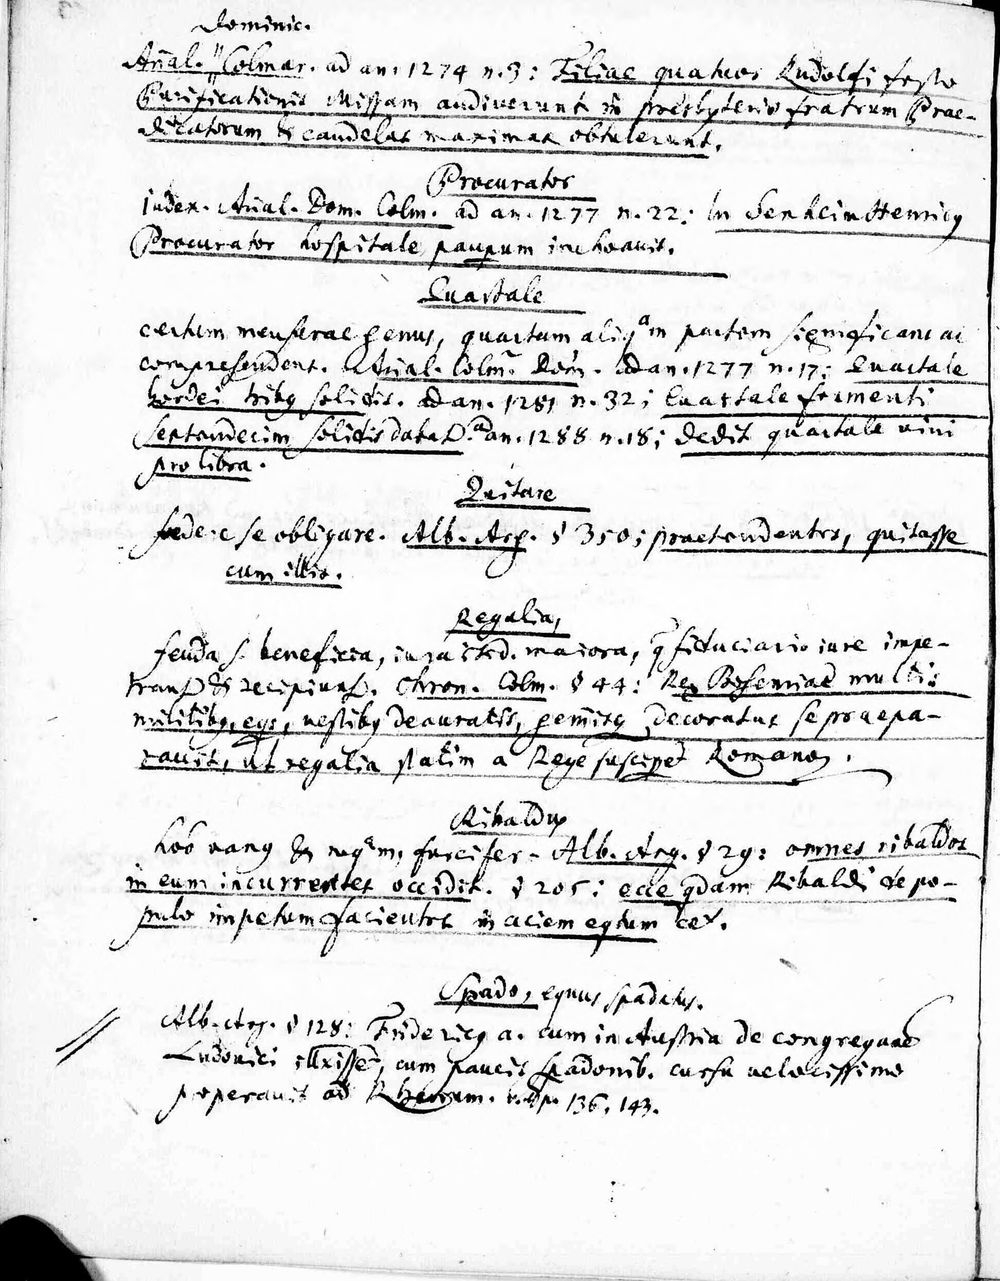 Dominic.
Añal. " Colmar. ad an. 1274 n. 3: Filiae quatuor Rudolfi festo
Purificationis Missam audiverunt in presbyterio fratrum Prae-
dicatorum & candelas maximas obtulerunt.
Procurator
iudex. Añal. Dom. Colm. ad an. 1277 n. 22: In Senheim Henricq
Procurator hospitale paupum inchoavit.
Quartale
certum mensurae genus, quartam aliqam partem significans ac
comprehendens. Añal. Colm. Dom. ad an. 1277 n. 17: Quartale
hordei tribq solidis. ad an. 1281 n. 32; Quartale frumenti
septendecim solidis dabat. ad an. 1288 n. 18; dedit quartale vini
pro libra.
Quitare
foedere se obligare. Alb. Arg. § 350; praetendentes, quitasse
cum illis.
Regalia,
feuda s. beneficia, maiora, q fiduciario iure impe-
& recipiunt. Chron. Colm. § 44: Rex Bohemiae multis
militibq, eqs, vestibq deauratis, gemisq decoratus se praepa-
ravit, ut regalia statim a Rege suscipet Romanoz.
Ribaldq
ho vanq & neqam, furcifer. Alb. Arg. § 29: omnes ribaldos
in eum incurrentes occidit. § 205; ecce qdam Ribaldi de po-
pulo impetum facientes in aciem eqtum cet.
Spado, equus spadatus.
Alb. Arg. § 128: Fridericq a. cum in Austria de congregane
Ludovici illxisset, cum paucis spadonib. cursu velocissimo
properavit ad Rhenum. 136, 143.